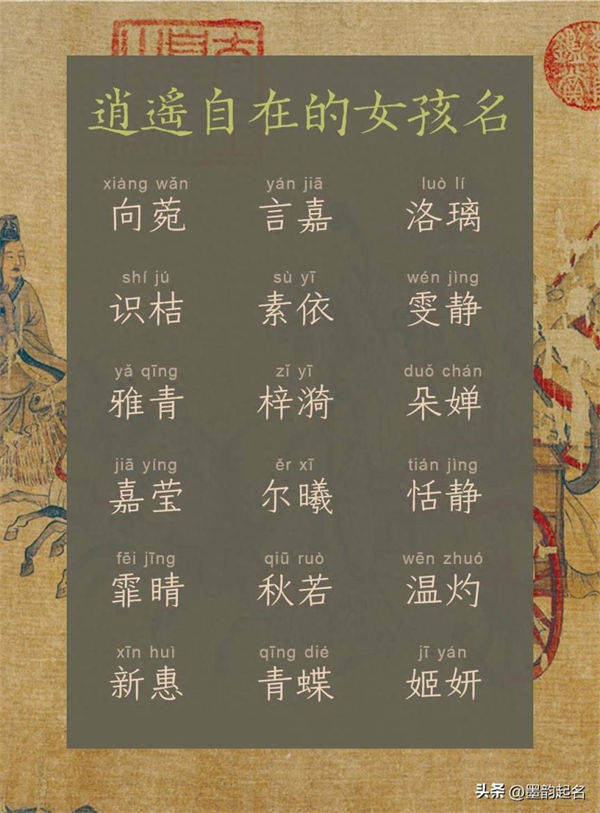 逍遥自在的女孩名
xiàng wǎn yán jiā luò lí
向菀 言嘉 洛璃
shí jú sù yī wén jìng
识桔 素依 雯静
yǎ qīng zǐ yī duǒ chán
雅青 梓漪 朵婵
jiā yíng ěr xī tián jìng
嘉莹 尔曦 恬静
fēi jīng qiū ruò wēn zhuó
霏晴 秋若 温灼
xīn huì qīng dié jī yán
新惠 青蝶 姬妍
头条 @墨韵起名